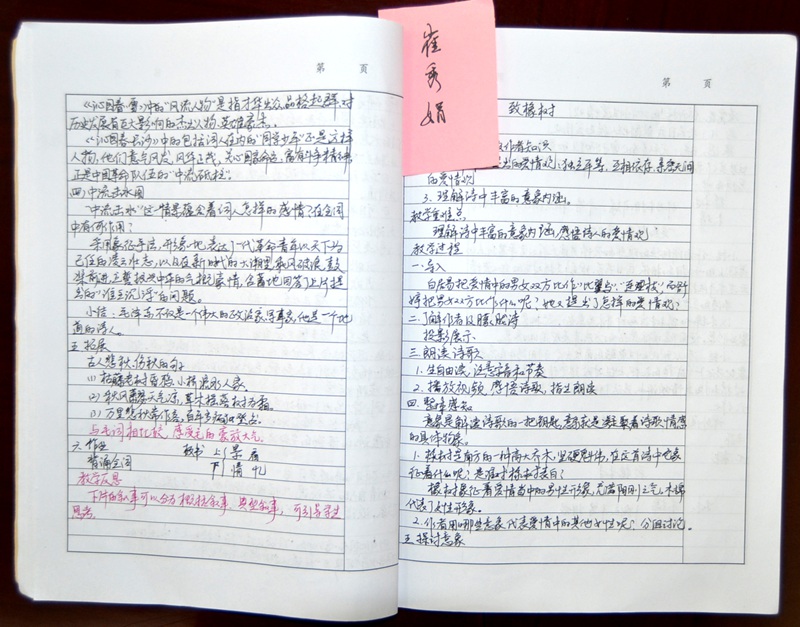 第 页
《沁园春·雪》中的"风流人物"是指才华出众,品格超群,对
历史发展有巨大影响的杰出人物、英雄豪杰。
《沁园春·长沙》中的包括词人在内的"同学少年"还是这样
人物,他们意气风发,风华正茂,关心国家命运,富有斗争精神,
正是中国革命队伍的"中流砥柱"。
四、中流击水图
"中流击水"这一情景蕴含着词人怎样的感情?在全词
中有何作用?
采用象征手法,形象地表达了一代革命青年以天下为
己任的凌云壮志,以及在新时代的大潮里乘风破浪,鼓
桨前进,主宰
中华的
豪情,含蓄地回答了上片提
出的"谁主沉浮"的问题。
小结:毛泽东不仅是一个伟大的政治家军事家,他是一个地
道的诗人。
五、拓展
古人悲秋、伤秋的句子
(1)枯藤老树昏鸦,小桥流水人家。
(2)秋风萧瑟天气凉,草木摇落
(3)万里悲秋常作客,百年多病独登台。
与毛词相比较,感受毛的豪放大气。
六、作业
背诵全词
板书 上:景
下:情 忆
教学反思
下片的叙事可以分为概括叙事,典型叙事,可引导学生
思考。
崔秀娟
第 页
致橡树
作者知识
的爱情观:独立平等,互相依存,亲密无间
的爱情观
3、理解诗中丰富的意象内涵。
教学重难点
理解诗中丰富的意象内涵,感悟诗人的爱情观
教学过程
一、导入
白居易把爱情中的男女双方比作"比翼鸟""连理枝",而舒
婷把男女双方比作什么呢?她又提出了怎样的爱情观?
二、了解作者及朦胧诗
投影展示
三、朗读诗歌
1、生自由读,注意字音和节奏
2、播放视频,感悟诗歌,指生朗读
四、整体感知
意象是解读诗歌的一把钥匙,意象是凝聚着诗歌情感
的具体物象。
1、橡树是南方的一种高大乔木,坚硬魁伟,在这首诗中它象
征着什么呢?是谁对橡树表白?
橡树象征着爱情当中的男性形象,充满阳刚之气,木棉
代表了女性形象。
2、作者用哪些意象代表爱情中的其他女性呢?分组讨论。
五、探讨意象